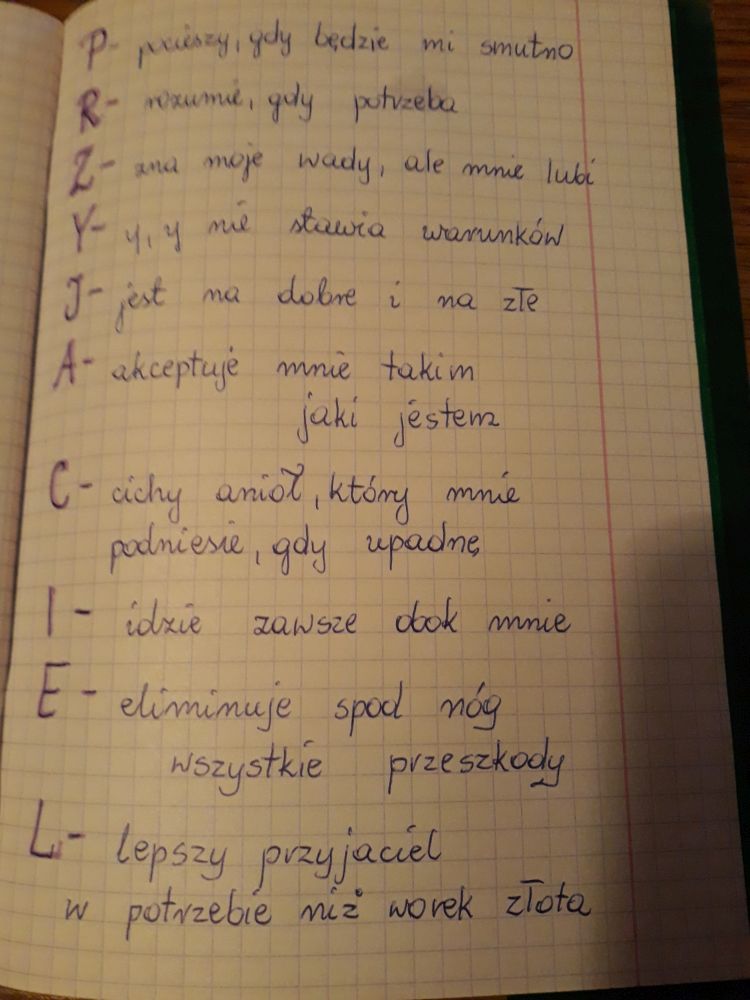 P- pocieszy, gdy będzie mi smutno
R- rozumie, gdy potrzeba
Z- zna moje wady, ale mnie lubi
Y- y, y nie stawia warunków
J- jest na dobre i na złe
A- akceptuje mnie takim
jaki jestem
C- cichy anioł, który mnie
podniesie, gdy upadnę
I- idzie zawsze obok mnie
E- eliminuje spod nóg
wszystkie przeszkody
L- lepszy przyjaciel
w potrzebie niż worek złota